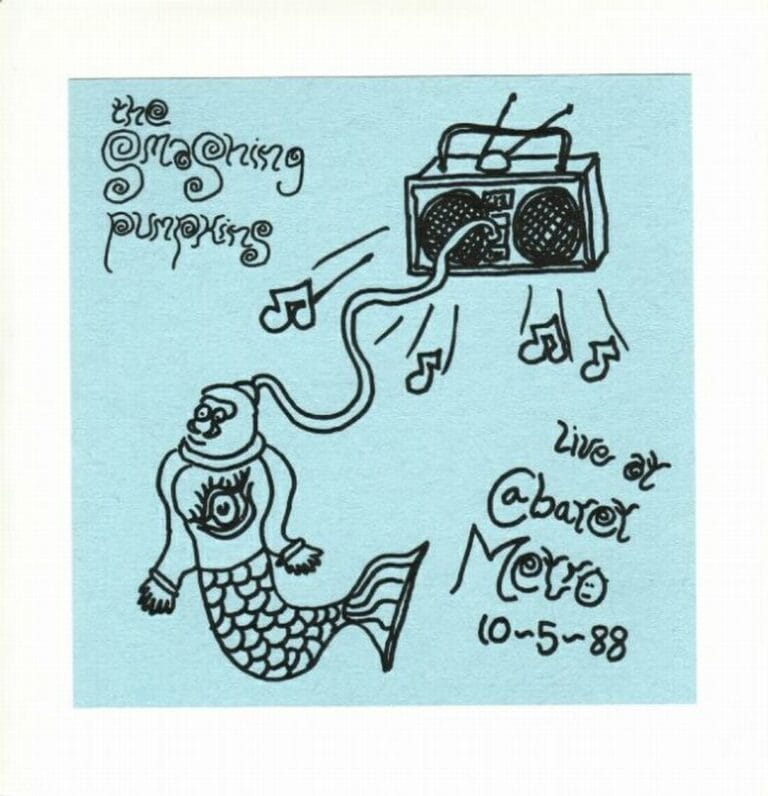 the
smashing
pumpkins
live at
Cabaret
Metro
10-5-88